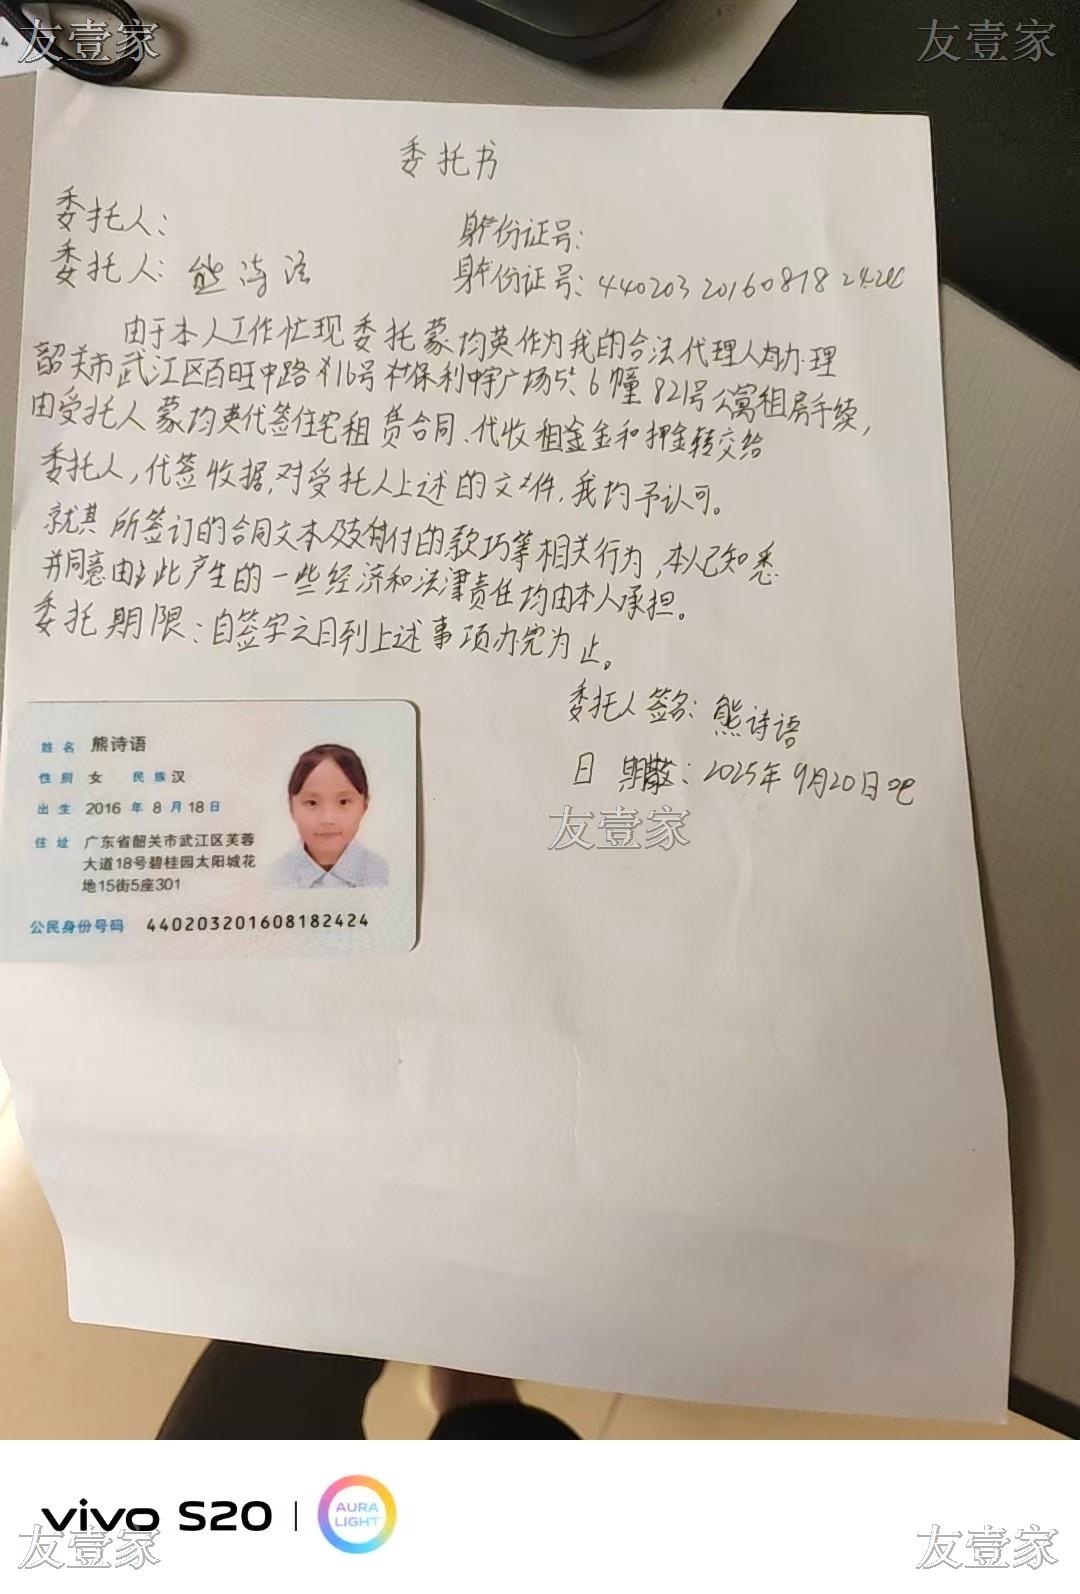 友壹家
友壹家
委托书
委托人：
身份证号：
委托人：熊诗语
身份证号：440203201608182424
由于本人工作忙现委托蒙均英作为我的合法代理人办理
韶关市武江区百旺中路16号保利中宇广场5、6幢821号公寓租房手续，
由受托人蒙均英代签住宅租赁合同、代收租金和押金转交给
委托人，代签收据，对受托人上述的文件，我均予认可。
就其所签订的合同文本及支付的款巧等相关行为，本人已知悉
并同意由此产生的一些经济和法津责任均由本人承担。
委托期限：自签字之日到上述事项办完为止。
委托人签名：熊诗语
日期：2025年9月20日
友壹家
姓名 熊诗语
性别 女 民族 汉
出生 2016年8月18日
住址 广东省韶关市武江区芙蓉
大道18号碧桂园太阳城花
地15街5座301
公民身份号码 440203201608182424
vivo S20 | AURA LIGHT
友壹家
友壹家